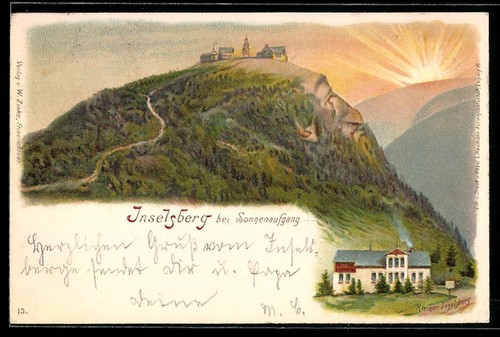 Verlag v. W. Zinke, Friedrichroda.
Inselsberg bei Sonnenaufgang
Herzlichen Gruß vom Insels-
berge sendet Dir u. Papa
Deine
M. C.
Kleiner Inselsberg.
15.